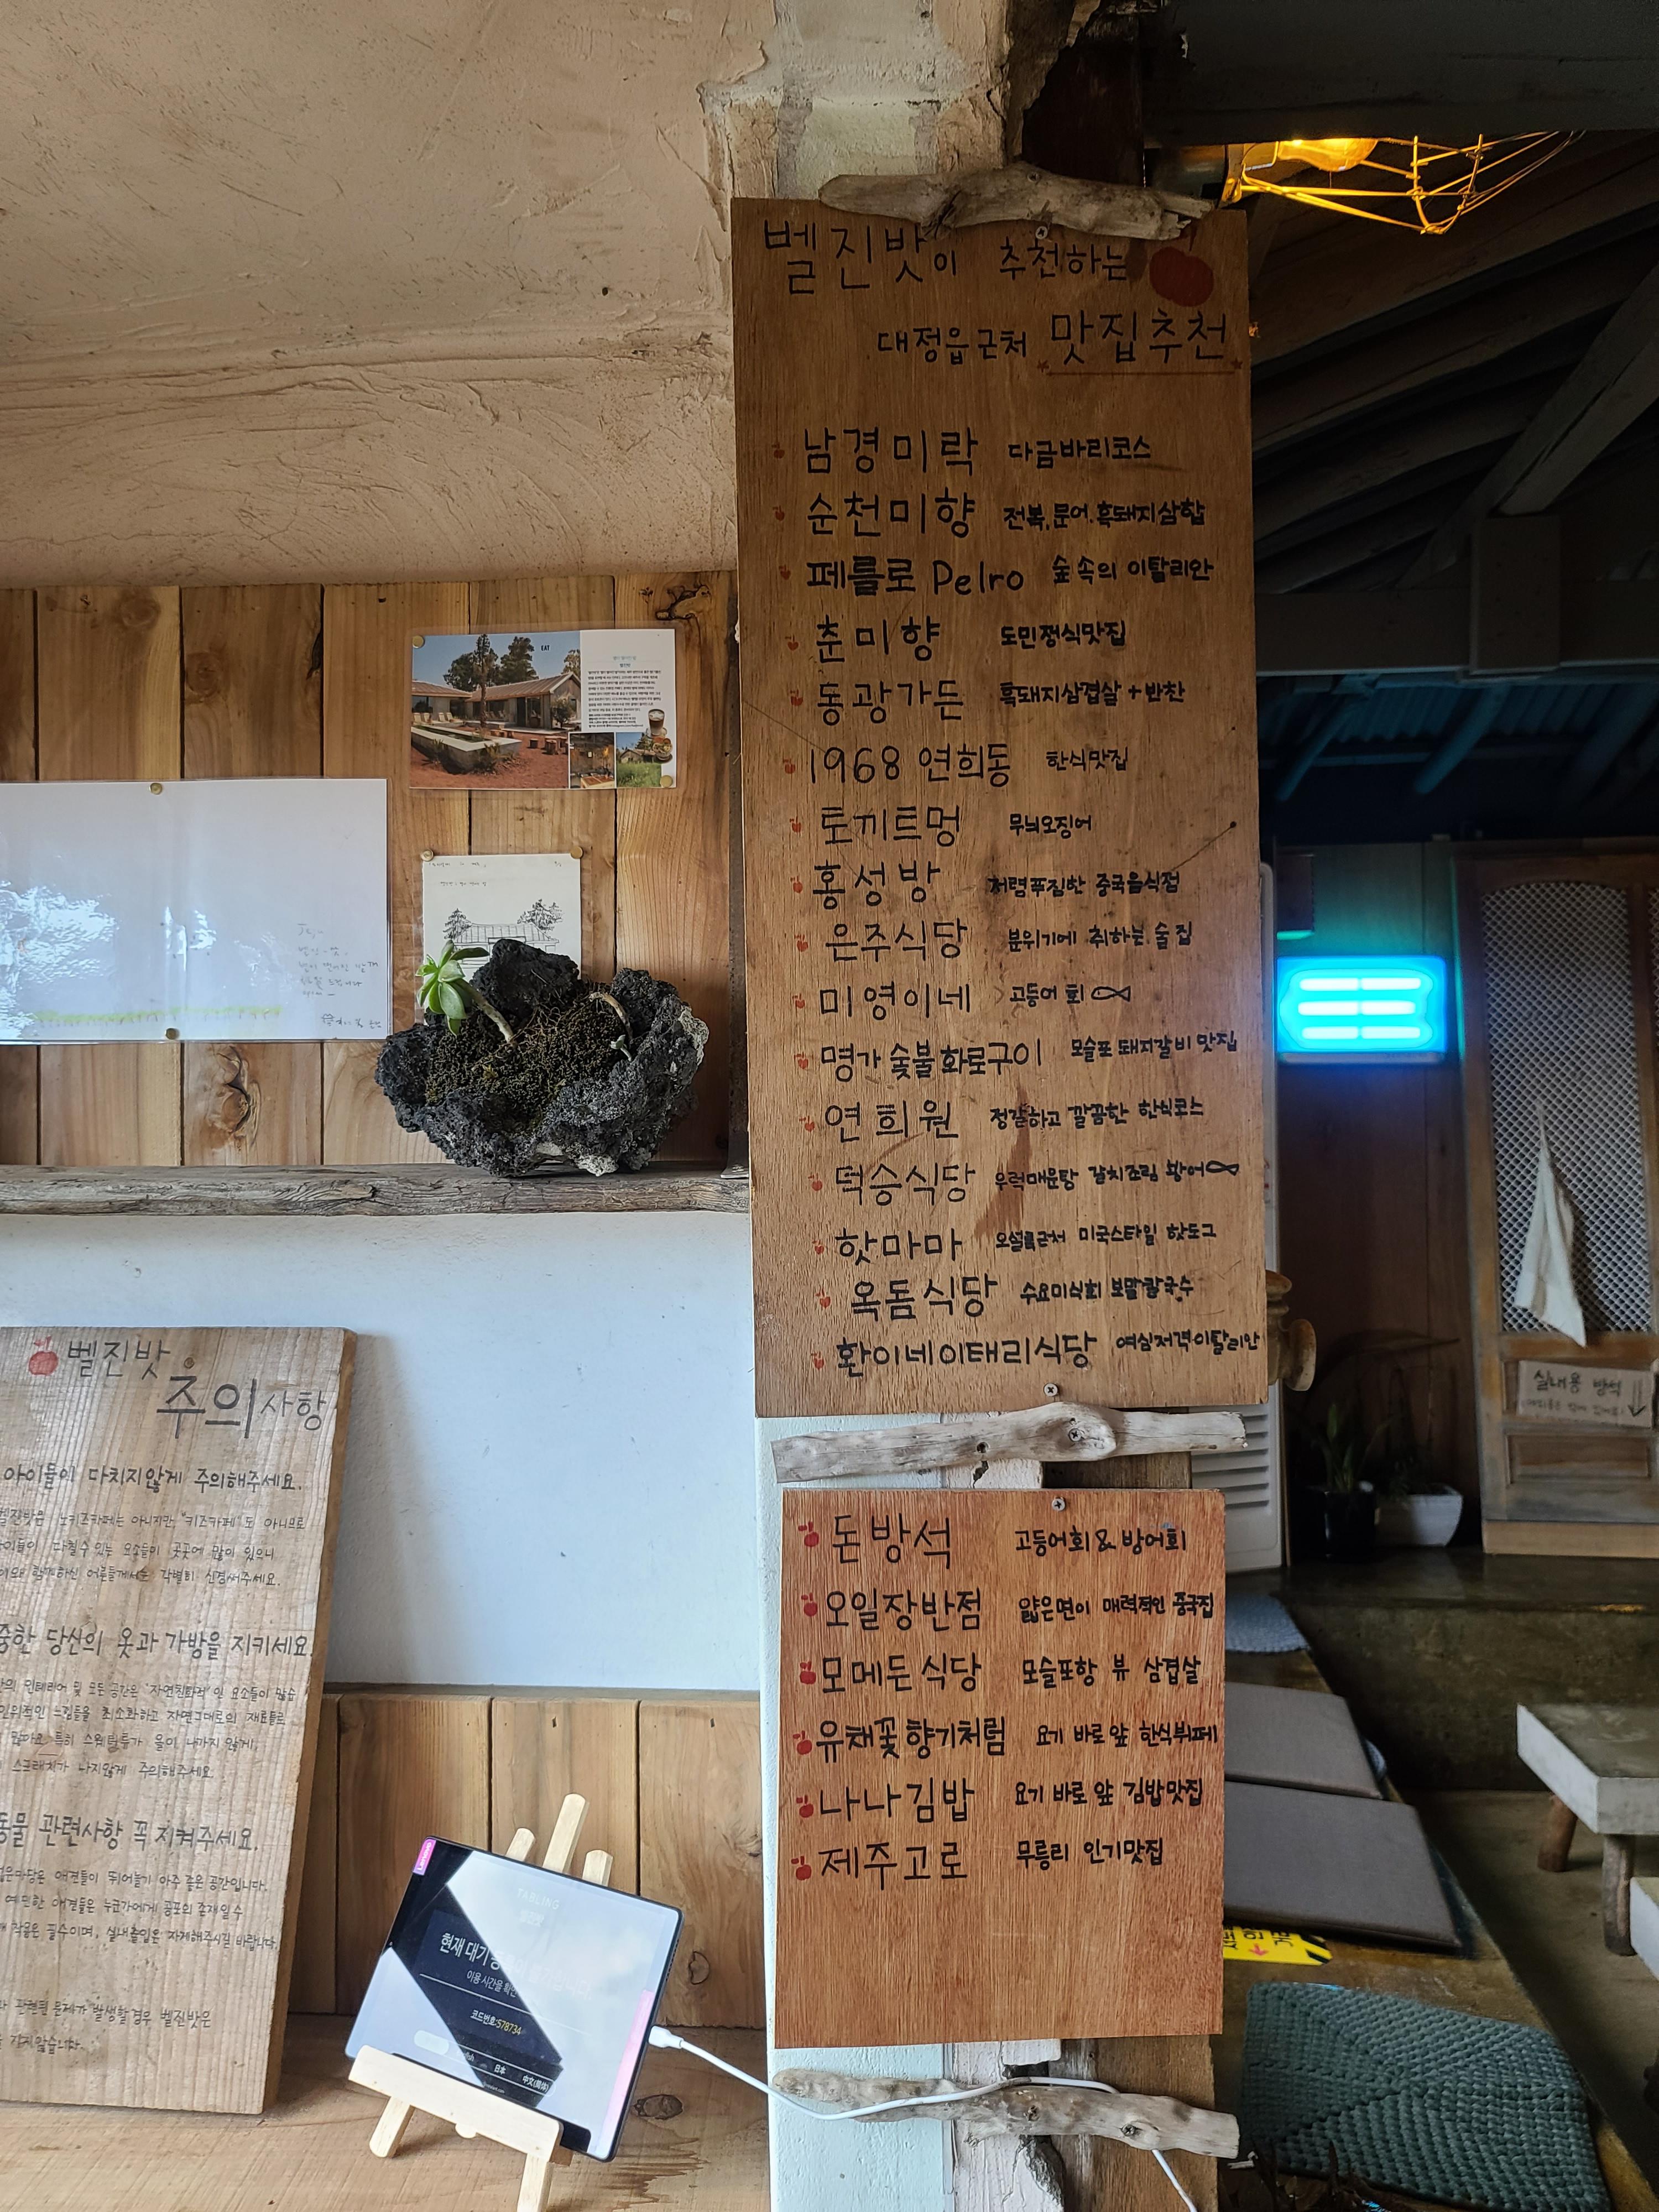 벨진밧이 추천하는
대정읍근처 맛집추천
남경미락 다금바리코스
순천미향 전복,문어.흑돼지삼합
페를로 Pelro 숲속의 이탈리안
춘미향 도민정식맛집
동광가든 흑돼지삼겹살+반찬
1968 연희동 한식맛집
토끼트멍 무늬오징어
홍성방 저렴푸짐한 중국음식점
은주식당 분위기에 취하는 술집
미영이네 고등어회
명가숯불화로구이 모슬포 돼지갈비 맛집
연희원 정갈하고 깔끔한 한식코스
덕승식당 우럭매운탕 갈치조림
핫마마 오설록근처 미국스타일 핫도그
옥돔식당 수요미식회 보말칼국수
환이네이태리식당 여심저격이탈리안
돈방석 고등어회&방어회
오일장반점 얇은면이 매력적인 중국집
모메든식당 모슬포항 뷰 삼겹살
유채꽃향기처럼 요기 바로앞 한식뷔페
나나김밥 요기 바로앞 김밥맛집
제주고로 무릉리 인기맛집
EAT
벨진밧
주의사항
아이들이 다치지않게 주의해주세요.
벨진밧은 노키즈카페는 아니지만, "키즈카페"도 아니므로
다칠수있는 요소들이 곳곳에 많이 있으니
함께하신 어른들께서는 각별히 신경써주세요.
당신의 옷과 가방을 지키세요.
인테리어 및 모든공간은 "자연친화적"인 요소들이 많습
인위적인 느낌들을 최소화하고 자연그대로의 재료들로
특히 스웨터등가 올이 나가지 않게,
스크래치가 나지않게 주의해주세요.
관련사항 꼭 지켜주세요.
애견들이 뛰어놀기 아주 좋은 공간입니다.
예민한 애견들은 누군가에게 공포의 존재일수
착용은 필수이며, 실내출입은 자제해주시길 바랍니다.
관련된 문제가 발생할경우 벨진밧은
지지않습니다.
Lenovo
TABLING
현재 대기
이용시간을 확인
코드번호:578734
日本
中文(簡体)
실내용 방석